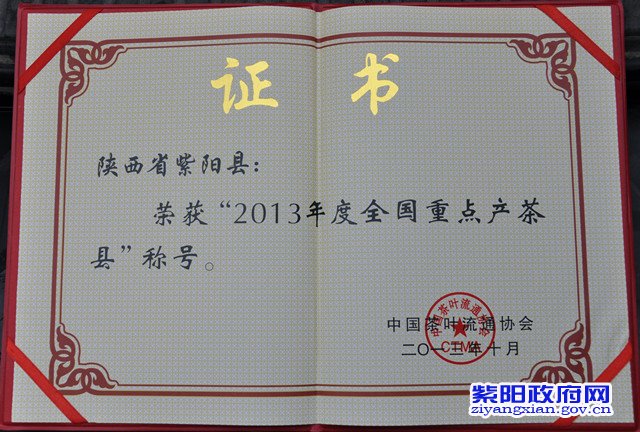 证书
陕西省紫阳县：
荣获“2013年度全国重点产茶
县”称号。
中国茶叶流通协会
中国茶叶流通协会
CTMA
二〇一三年十月
紫阳政府网
ziyangxian.gov.cn